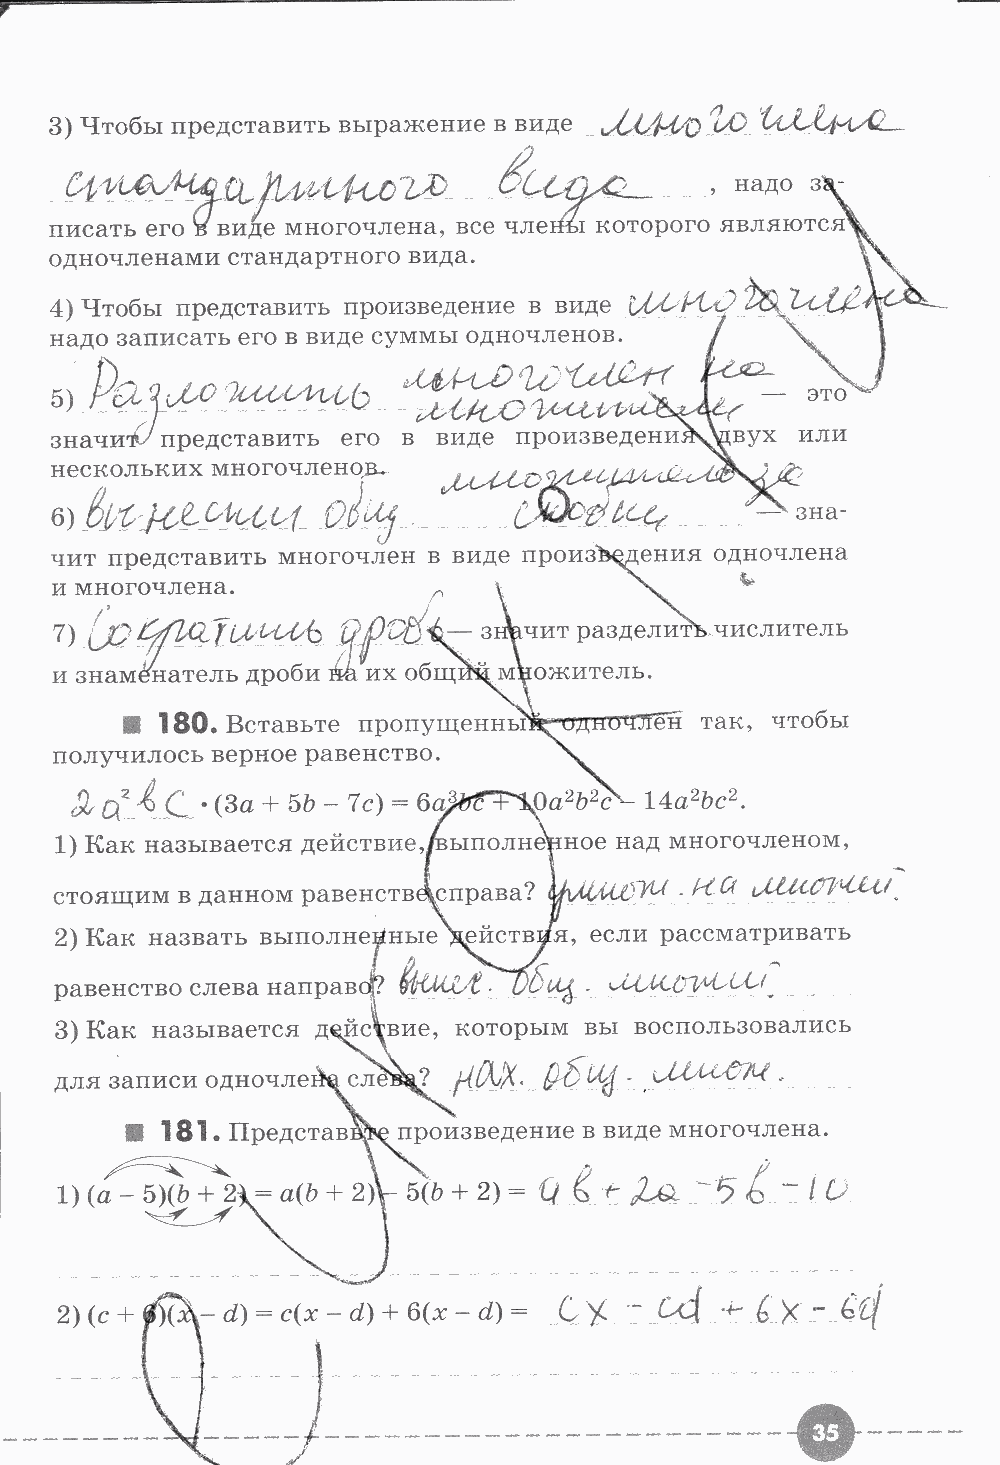 3) Чтобы представить выражение в виде многочлена
стандартного вида, надо за-
писать его в виде многочлена, все члены которого являются
одночленами стандартного вида.
4) Чтобы представить произведение в виде многочлена
надо записать его в виде суммы одночленов.
5) Разложить многочлен на множители — это
значит представить его в виде произведения двух или
нескольких многочленов.
множитель за
6) вынести общ скобки — зна-
чит представить многочлен в виде произведения одночлена
и многочлена.
7) Сократить дробь — значит разделить числитель
и знаменатель дроби на их общий множитель.
180. Вставьте пропущенный одночлен так, чтобы
получилось верное равенство.
2a²bc · (3a + 5b − 7c) = 6a³bc + 10a²b²c − 14a²bc².
1) Как называется действие, выполненное над многочленом,
стоящим в данном равенстве справа? умнож. на множит.
2) Как назвать выполненные действия, если рассматривать
равенство слева направо? вынес. общ. множит.
3) Как называется действие, которым вы воспользовались
для записи одночлена слева? нах. общ. множ.
181. Представьте произведение в виде многочлена.
1) (a − 5)(b + 2) = a(b + 2) − 5(b + 2) = ab + 2a − 5b − 10
2) (c + 6)(x − d) = c(x − d) + 6(x − d) = cx − cd + 6x − 6d
35